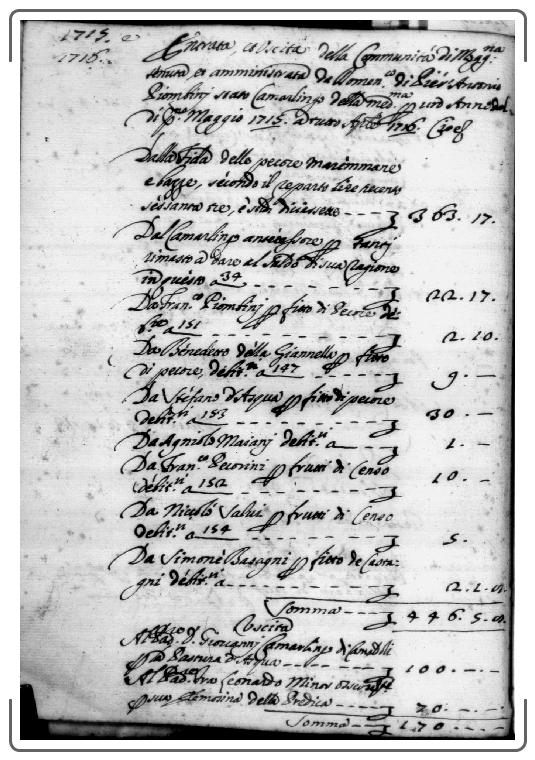 1715. e
1716.
Entrata, et Vscita della Communità di Magna
tenuta, et amministrata da Domen.co di Pier Antonio
Piombini stato Camarlingo della med.ma p un Anno
di p.mo Maggio 1715. a tutto Aple 1716. Cioè
Dalla Fida delle pecore maremmane
e bazze, secondo il reparto lire trecento
sessanta tre, e soldi dicissette - - - £ 363. 17.
Dal Camarlingo antecessore p
rimasto a dare al Saldo di sua ragione
in questo a 34 - - - £ 22. 17.
Da Fran.co Piombini p fitto di Pecore
a 151 - - - £ 2. 10.
Da Benedetto della Giannella p fitto
di pecore, debit.re a 147 - - - £ 9. —
Da Stefano d'Acqua p fitto di pecore
debit.re a 153 - - - £ 30. —
Da Agniolo Maiani debit.re a — £ 1. —
Da Fran.co Pecorini p frutti di Censo
debit.re a 152 - - - £ 10. —
Da Niccolò Salvi p frutti di Censo
debit.re a 154 - - - £ 5.
Da Simone Basagni p fitto de Casta-
gni debit.re a - - - £ 2. 1. 8.
Somma - - - £ 446. 5. 8.
Vscita
Al Pad. D. Giovanni Camarlingo di Camaldoli
p la Pastura d'Acqua - - - £ 100. — . —
Al Pad. fra Leonardo Minor
p sua elemosina della Predica - - - £ 70. — . —
Somma - - - £ 170. — . —